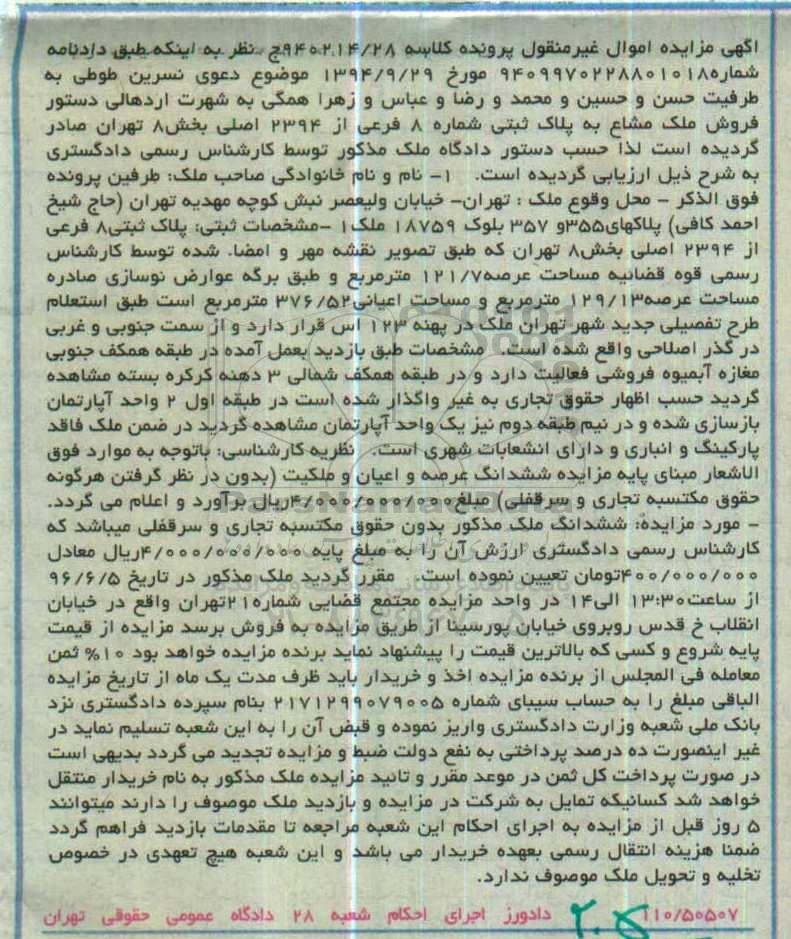 اگهی مزایده اموال غیرمنقول پرونده کلاسه ۹۴۰۲۱۴/۲۸ج نظر به اینکه طبق دادنامه
شماره۹۴۰۹۹۷۰۲۲۸۸۰۱۰۱۸ مورخ ۱۳۹۴/۹/۲۹ موضوع دعوی نسرین طوطی به
طرفیت حسن و حسین و محمد و رضا و عباس و زهرا همگی به شهرت اردهالی دستور
فروش ملک مشاع به پلاک ثبتی شماره ۸ فرعی از ۲۳۹۴ اصلی بخش۸ تهران صادر
گردیده است لذا حسب دستور دادگاه ملک مذکور توسط کارشناس رسمی دادگستری
به شرح ذیل ارزیابی گردیده است. ۱- نام و نام خانوادگی صاحب ملک: طرفین پرونده
فوق الذکر - محل وقوع ملک : تهران- خیابان ولیعصر نبش کوچه مهدیه تهران (حاج شیخ
احمد کافی) پلاکهای۳۵۵و ۳۵۷ بلوک ۱۸۷۵۹ ملک۱ -مشخصات ثبتی: پلاک ثبتی۸ فرعی
از ۲۳۹۴ اصلی بخش۸ تهران که طبق تصویر نقشه مهر و امضا. شده توسط کارشناس
رسمی قوه قضائیه مساحت عرصه۱۲۱/۷ مترمربع و طبق برگه عوارض نوسازی صادره
مساحت عرصه۱۲۹/۱۳ مترمربع و مساحت اعیانی۳۷۶/۵۲ مترمربع است طبق استعلام
طرح تفصیلی جدید شهر تهران ملک در پهنه ۱۲۳ اس قرار دارد و از سمت جنوبی و غربی
در گذر اصلاحی واقع شده است. مشخصات طبق بازدید بعمل آمده در طبقه همکف جنوبی
مغازه آبمیوه فروشی فعالیت دارد و در طبقه همکف شمالی ۳ دهنه کرکره بسته مشاهده
گردید حسب اظهار حقوق تجاری به غیر واگذار شده است در طبقه اول ۲ واحد آپارتمان
بازسازی شده و در نیم طبقه دوم نیز یک واحد آپارتمان مشاهده گردید در ضمن ملک فاقد
پارکینگ و انباری و دارای انشعابات شهری است. نظریه کارشناسی: باتوجه به موارد فوق
الاشعار مبنای پایه مزایده ششدانگ عرصه و اعیان و ملکیت (بدون در نظر گرفتن هرگونه
حقوق مکتسبه تجاری و سرقفلی) مبلغ۴/۰۰۰/۰۰۰/۰۰۰ریال برآورد و اعلام می گردد.
- مورد مزایده: ششدانگ ملک مذکور بدون حقوق مکتسبه تجاری و سرقفلی میباشد که
کارشناس رسمی دادگستری ارزش آن را به مبلغ پایه ۴/۰۰۰/۰۰۰/۰۰۰ریال معادل
۴۰۰/۰۰۰/۰۰۰تومان تعیین نموده است. مقرر گردید ملک مذکور در تاریخ ۹۶/۶/۵
از ساعت۱۳:۳۰ الی۱۴ در واحد مزایده مجتمع قضایی شماره۲۱تهران واقع در خیابان
انقلاب خ قدس روبروی خیابان پورسینا از طریق مزایده به فروش برسد مزایده از قیمت
پایه شروع و کسی که بالاترین قیمت را پیشنهاد نماید برنده مزایده خواهد بود ۱۰% ثمن
معامله فی المجلس از برنده مزایده اخذ و خریدار باید ظرف مدت یک ماه از تاریخ مزایده
الباقی مبلغ را به حساب سیبای شماره ۲۱۷۱۲۹۹۰۷۹۰۰۵ بنام سپرده دادگستری نزد
بانک ملی شعبه وزارت دادگستری واریز نموده و قبض آن را به این شعبه تسلیم نماید در
غیر اینصورت ده درصد پرداختی به نفع دولت ضبط و مزایده تجدید می گردد بدیهی است
در صورت پرداخت کل ثمن در موعد مقرر و تائید مزایده ملک مذکور به نام خریدار منتقل
خواهد شد کسانیکه تمایل به شرکت در مزایده و بازدید ملک موصوف را دارند میتوانند
۵ روز قبل از مزایده به اجرای احکام این شعبه مراجعه تا مقدمات بازدید فراهم گردد
ضمنا هزینه انتقال رسمی بعهده خریدار می باشد و این شعبه هیچ تعهدی در خصوص
تخلیه و تحویل ملک موصوف ندارد.
۱۱۰/۵۰۵۰۷ دادورز اجرای احکام شعبه ۲۸ دادگاه عمومی حقوقی تهران